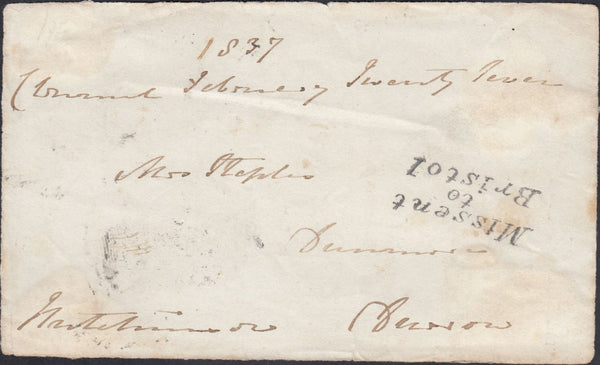 1837
February Twenty Seven
Mrs Staples
Missent
to
Bristol
Dunmore
Durrow